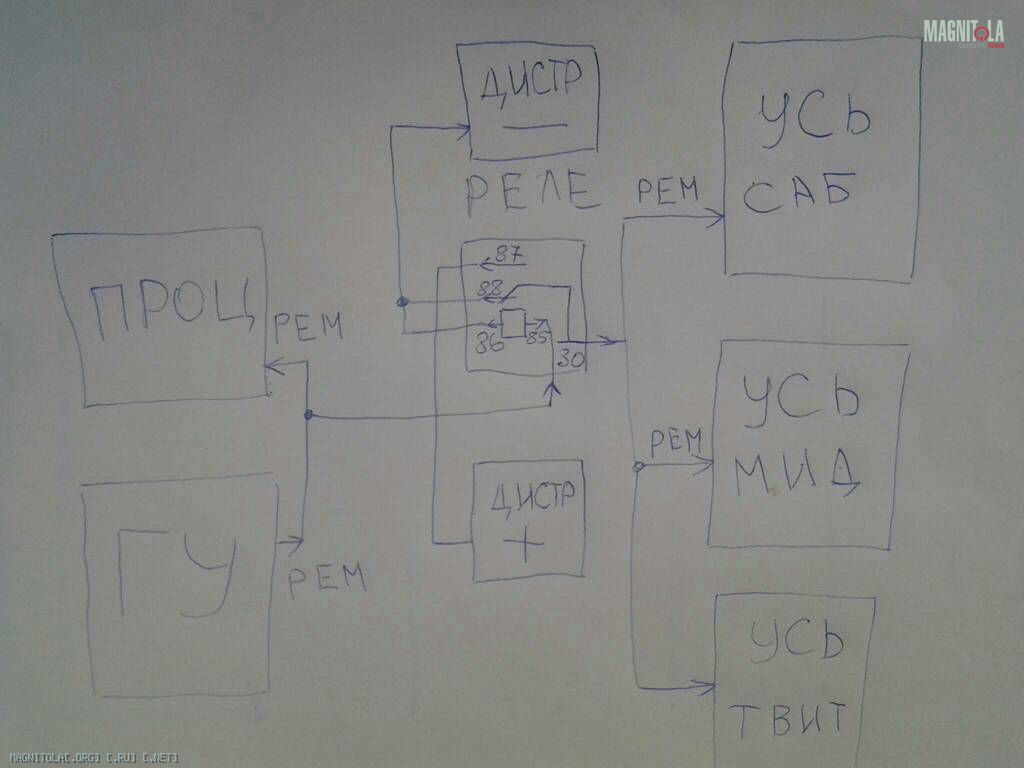 MAGNITOLA
ДИСТР
—
РЕЛЕ
УСЬ
САБ
РЕМ
ПРОЦ
РЕМ
87
88
86
85
30
УСЬ
МИД
РЕМ
ДИСТР
+
ГУ
РЕМ
УСЬ
ТВИТ
MAGNITOLA[.ORG] [.RU] [.NET]